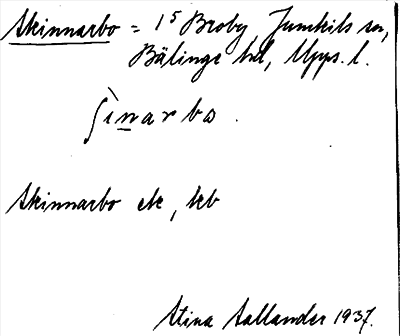 Skinnarbo = 1⁵ Broby, Jumkils sn,
Bälinge hd, Upps. l.
ʃìnarbo.
Skinnarbo ek, beb
Stina Sallander 1937.